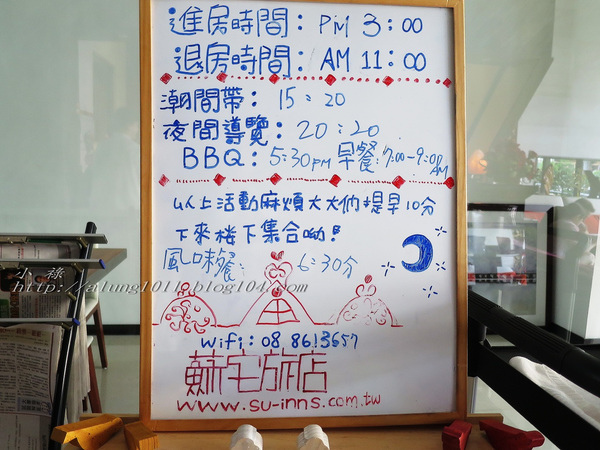 進房時間：PM 3：00
退房時間：AM 11：00
潮間帶：15：20
夜間導覽：20：20
BBQ：5:30PM 早餐：7:00~9:00AM
以上活動麻煩大大們提早10分
下來樓下集合呦！
風味餐：6：30分
小祿
http://alung1011.blog104.com
wifi：08.8613657
蘇宅旅店
www.su-inns.com.tw